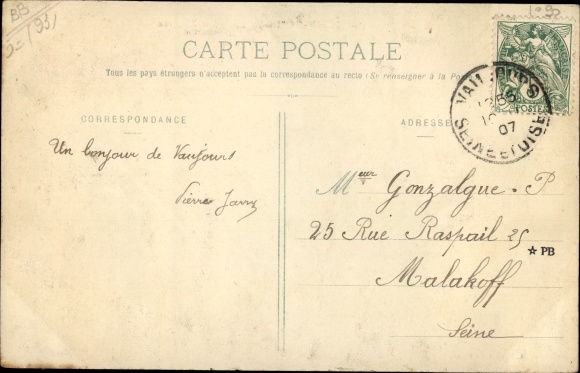 BB
CARTE POSTALE
Tous les pays étrangers n'acceptent pas la correspondance au recto (Se renseigner à la Po
CORRESPONDANCE
ADRESSE
VAUJOURS
10
07
SEINE ET OISE
POSTES
Un bonjour de Vaujours
Pierre Jarry
Meur Gonzalgue. P
25 Rue Raspail 25
☆ PB
Malakoff
Seine